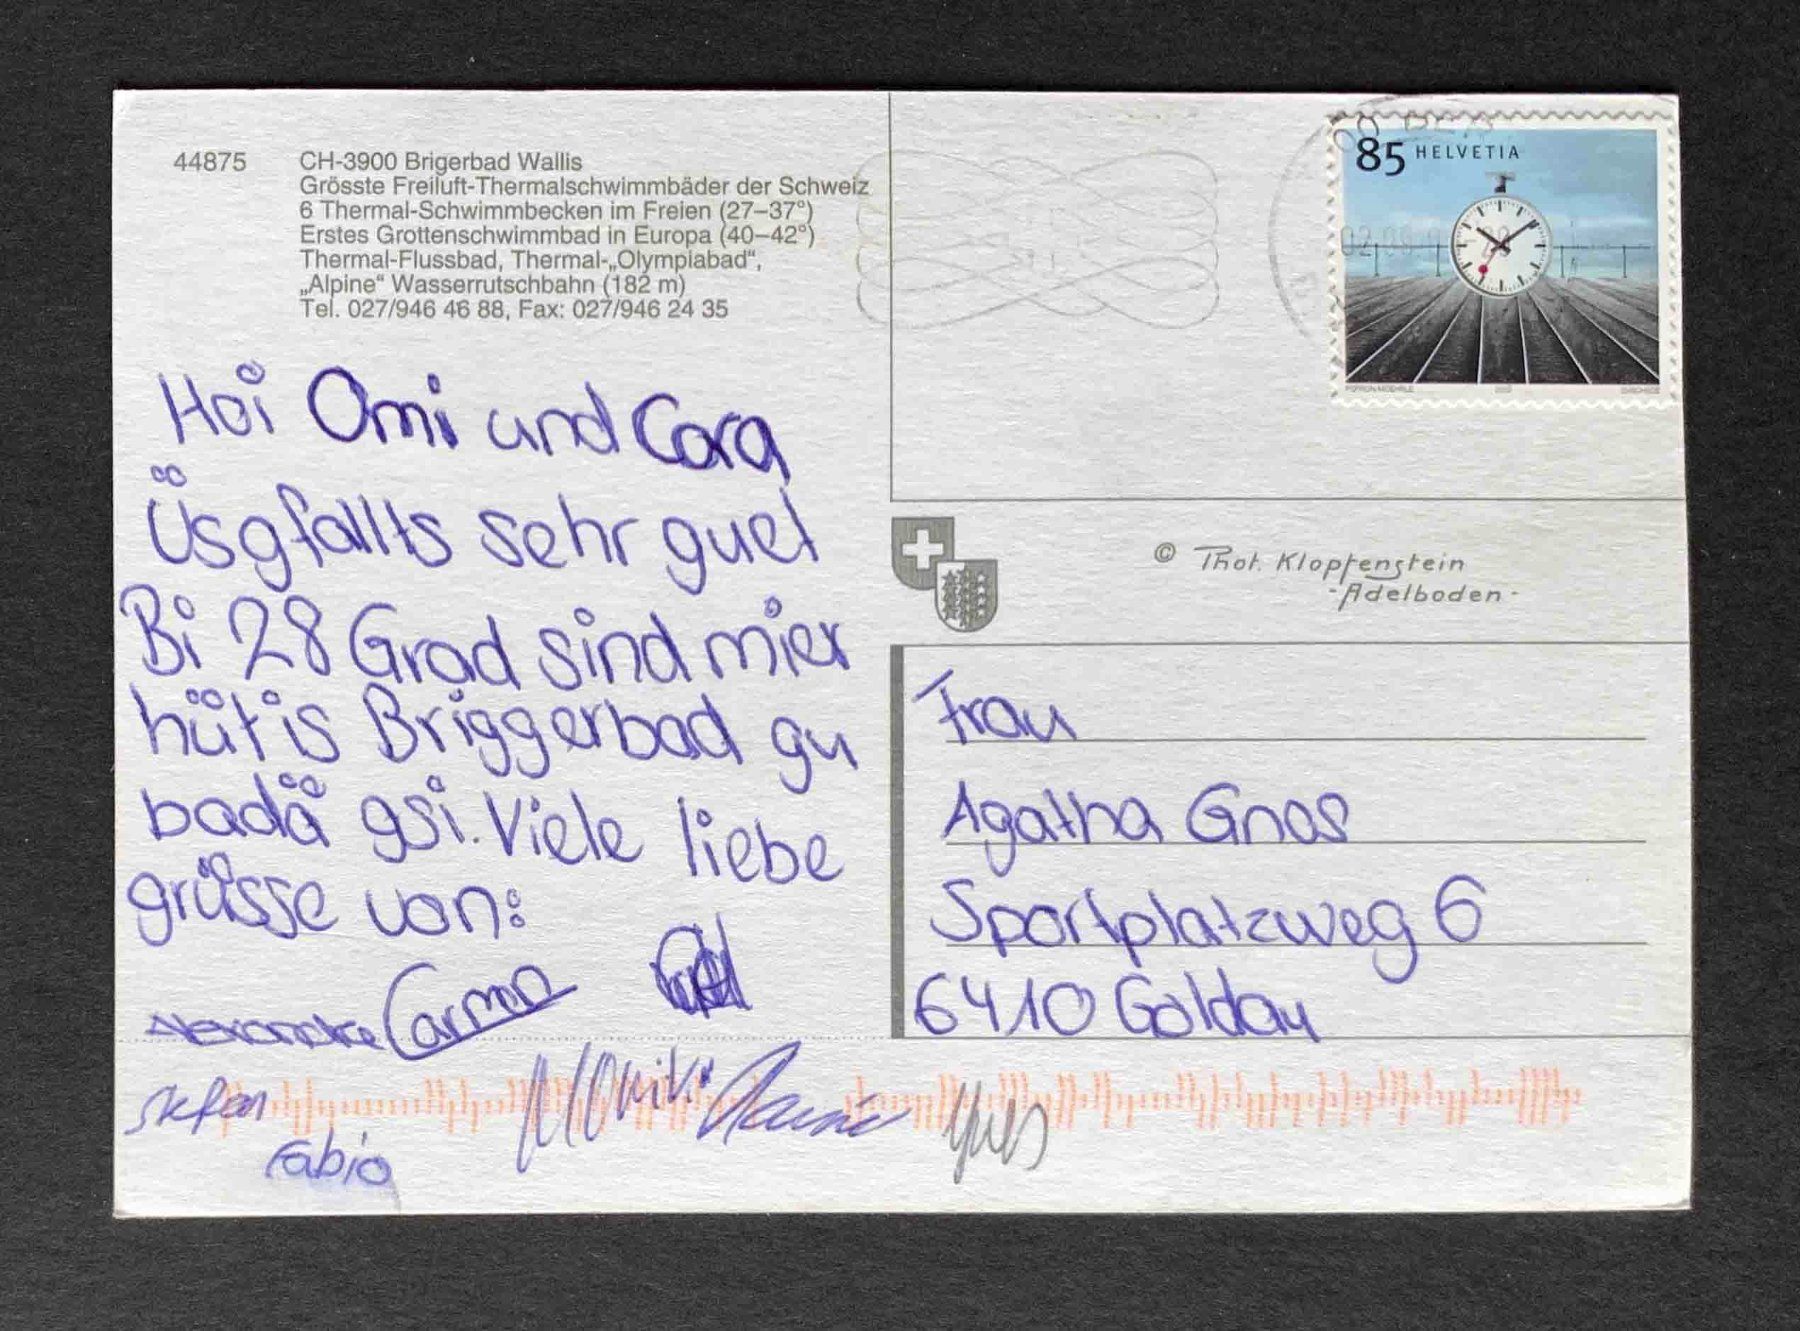 44875 CH-3900 Brigerbad Wallis
Grösste Freiluft-Thermalschwimmbäder der Schweiz
6 Thermal-Schwimmbecken im Freien (27–37°)
Erstes Grottenschwimmbad in Europa (40–42°)
Thermal-Flussbad, Thermal-„Olympiabad“,
„Alpine“ Wasserrutschbahn (182 m)
Tel. 027/946 46 88, Fax: 027/946 24 35
Hoi Omi und Cora
Üsgfallts sehr guet
Bi 28 Grad sind mier
hüt is Briggerbad gu
badä gsi. Viele liebe
grüsse von:
Alexandra Carmen
Stefan Moniki Yves
Fabio
85 HELVETIA
© Phot. Klopfenstein
-Adelboden-
Frau
Agatha Gnos
Sportplatzweg 6
6410 Goldau